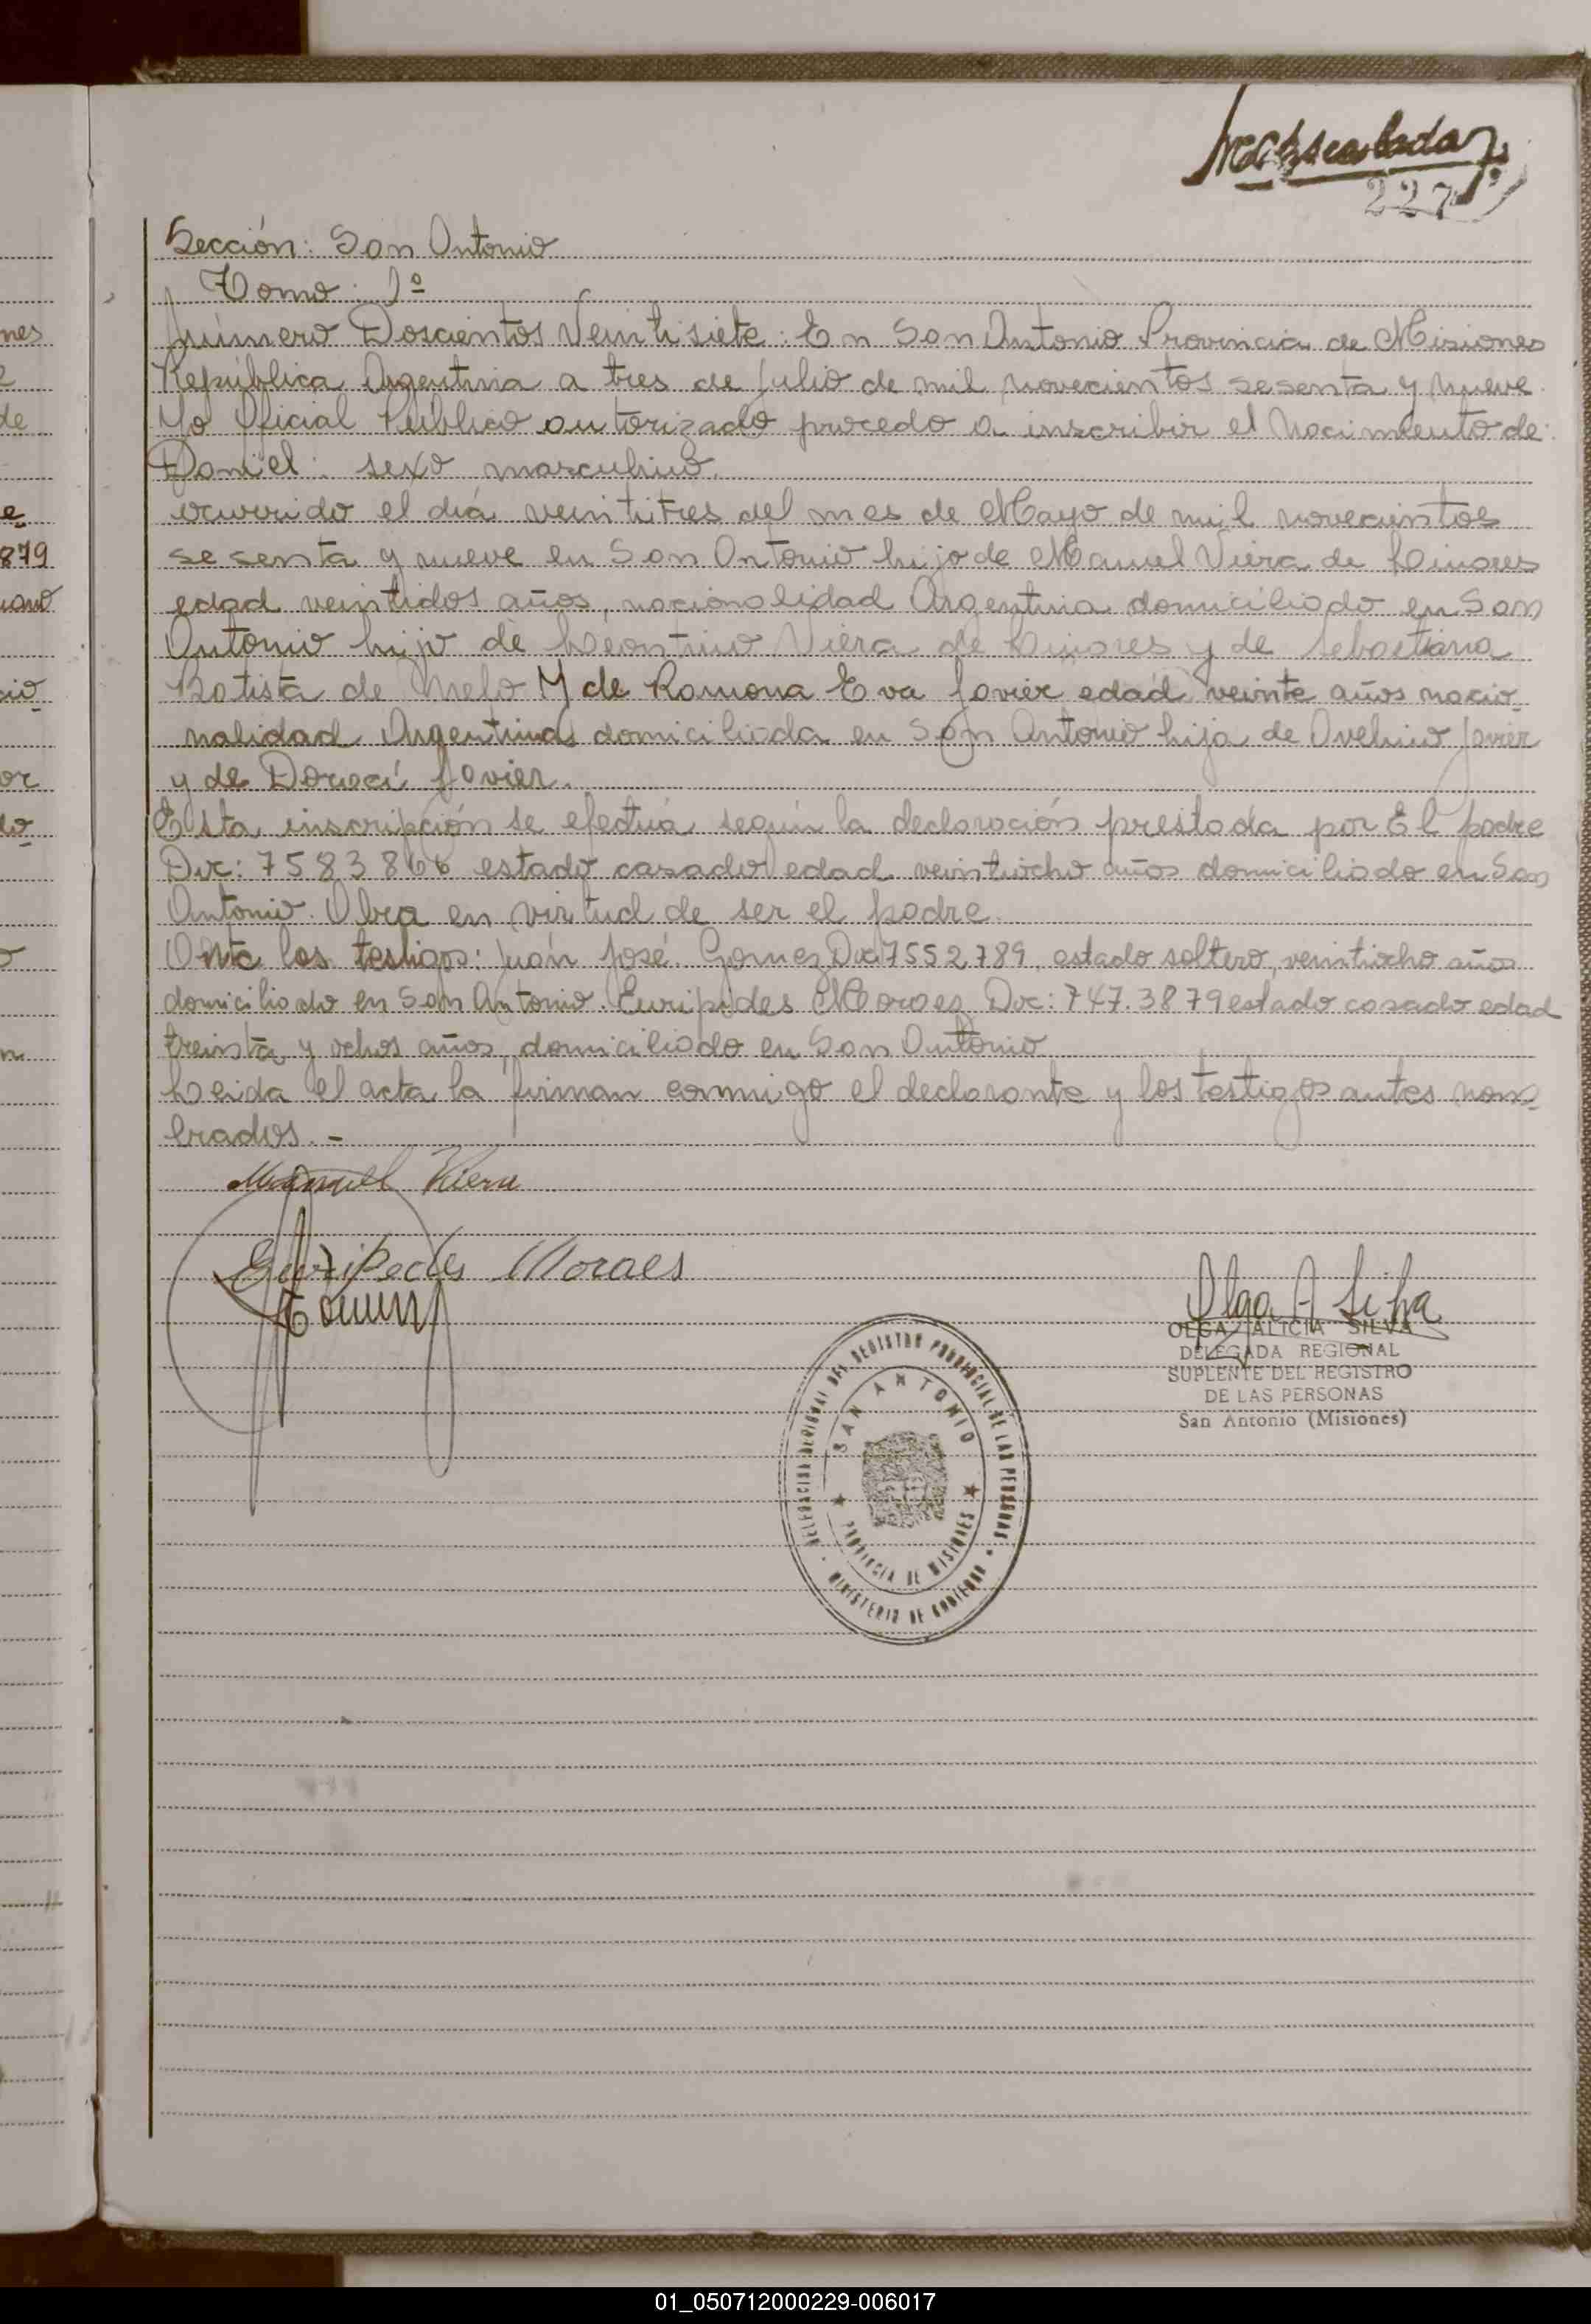 227
Sección: San Antonio
Tomo: 1º
Número Doscientos Veintisiete: En San Antonio Provincia de Misiones
República Argentina a tres de Julio de mil novecientos sesenta y nueve
Yo Oficial Público autorizado procedo a inscribir el Nacimiento de:
Daniel: sexo masculino.
ocurrido el día veintitres del mes de Mayo de mil novecientos
sesenta y nueve en San Antonio hijo de Manuel Viera de Linares
edad veintidos años, nacionalidad Argentina domiciliado en San
Antonio hijo de Leontino Viera de Linares y de Sebastiana
Batista de Melo Y de Ramona Eva Javier edad veinte años nacio-
nalidad Argentina domiciliada en San Antonio hija de Avelino Javier
y de Doraci Javier.
Esta inscripción se efectúa según la declaración prestada por El padre
Doc: 7583866 estado casado edad veintiocho años domiciliado en San
Antonio. Obra en virtud de ser el padre.
Ante los testigos: Juán José Gomez Doc 7552789, estado soltero, veintiocho años
domiciliado en San Antonio. Euripides Moraes Doc: 747.3879 estado casado edad
treinta y ochos años, domiciliado en San Antonio
Leida el acta la firman conmigo el declarante y los testigos antes nom-
brados. -
Manuel Viera
Euripedes Moraes
Olga A Silva
OLGA ALICIA SILVA
DELEGADA REGIONAL
SUPLENTE DEL REGISTRO
DE LAS PERSONAS
San Antonio (Misiones)
DELEGACION REGIONAL DEL REGISTRO PROVINCIAL DE LAS PERSONAS
SAN ANTONIO
PROVINCIA DE MISIONES
MINISTERIO DE GOBIERNO
nes
de
e
879
cio
or
01_050712000229-006017